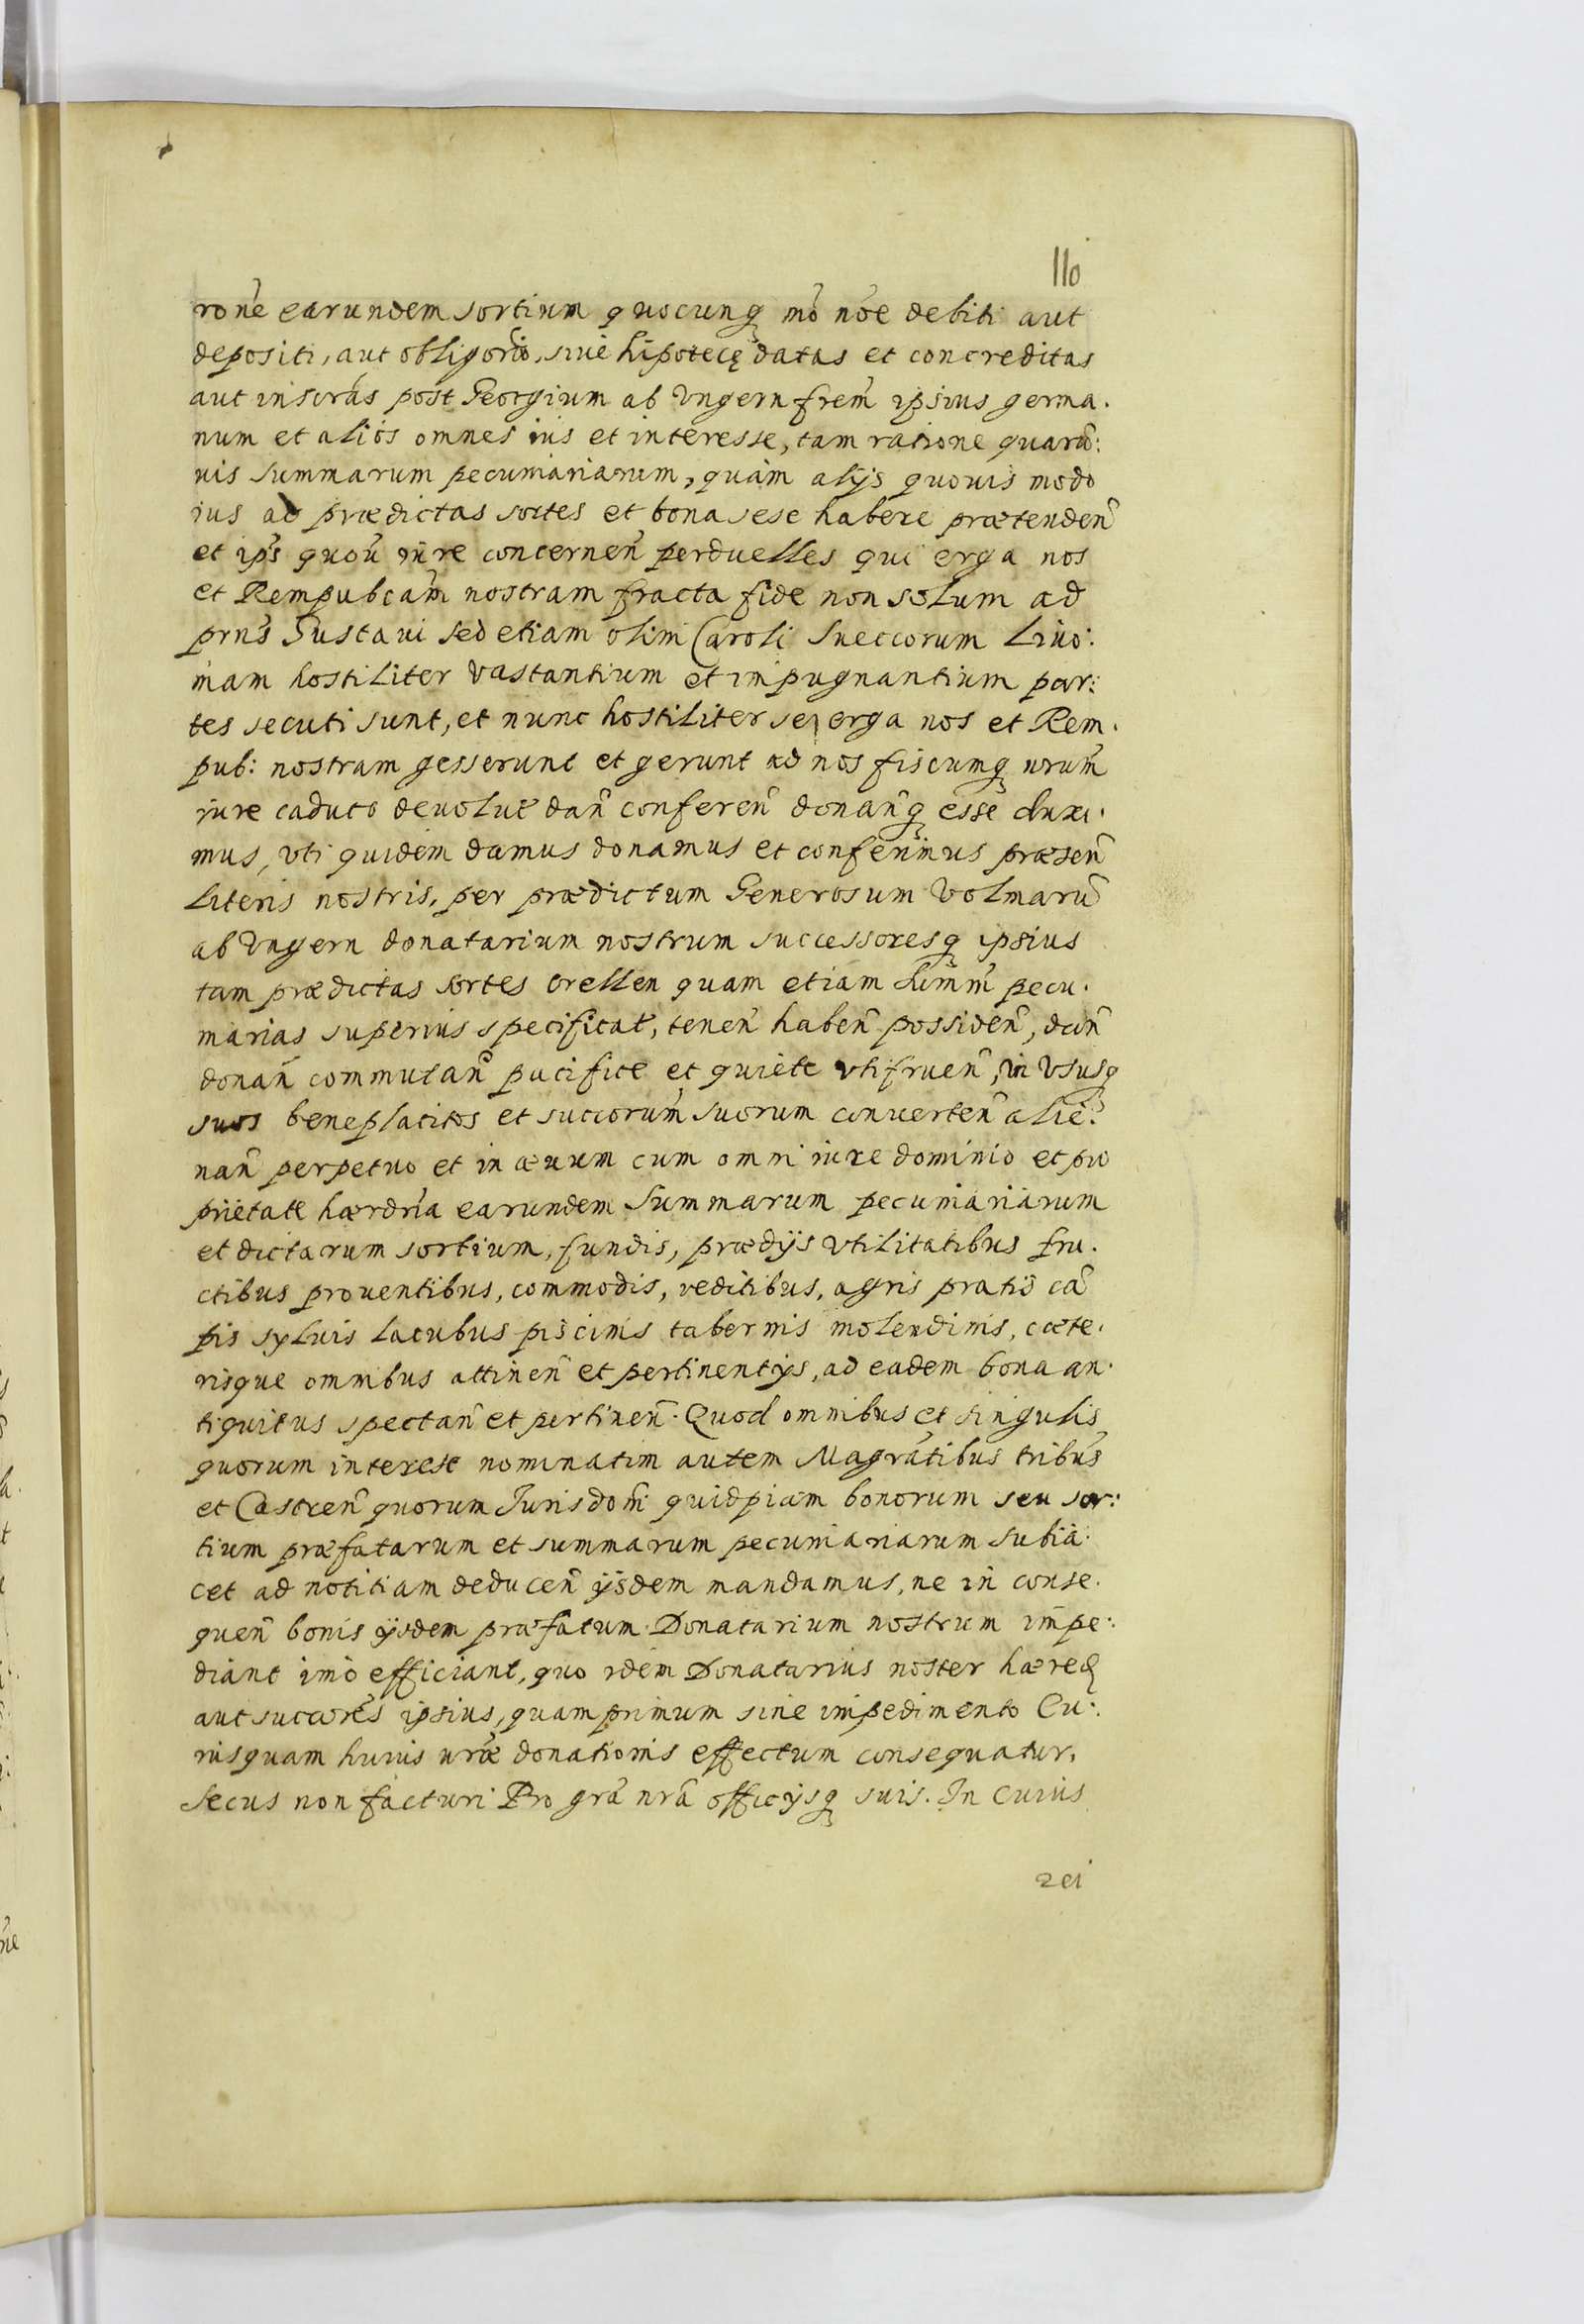 110
rone earundem sortium quocunq mo noe debiti aut
depositi, aut obligorio, siue hipotecę datas et concreditas
aut inscras post Georgium ab Vngern frem ipsius germa.
num et alios omnes ius et interesse, tam ratione quarū:
uis summarum pecuniariarum, quàm alijs quouis modo
ius ad prædictas sortes et bona sese habere prætenden
et ips quou iure concernen perduelles qui erga nos
et Rempubcam nostram fracta fide non solum ad
prns Gustaui sed etiam olim Caroli Sueccorum Liuo:
niam hostiliter vastantium et impugnantium par:
tes secuti sunt, et nunc hostiliter se erga nos et Rem.
pub: nostram gesserunt et gerunt ad nos fiscumq nrum
iure caduco deuolut dan conferen donanq esse duxi.
mus, vti quidem damus donamus et conferimus præsen
literis nostris, per prædictum Generosum Volmarū
ab Vngern donatarium nostrum successoresq ipsius
tam prædictas sortes Orellen quam etiam summ pecu.
niarias superius specificat, tenen haben possiden, dan
donan commutan pacifice et quiete vtifruen, in vsusq
suos beneplacitos et succorum suorum conuerten alie:
nan perpetuo et in æuum cum omni iure dominio et pro
prietate hærdria earundem summarum pecuniariarum
et dictarum sortium, fundis, prædijs vtilitatibus fru.
ctibus prouentibus, commodis, reditibus, agris pratis cā
pis syluis lacubus piscinis tabernis molendinis, cæte.
risque omnibus attinen et pertinentijs, ad eadem bona an.
tiquitus spectan et pertinen. Quod omnibus et singulis
quorum interest nominatim autem Magratibus tribus
et Castren quorum Jurisdoni quidpiam bonorum seu sor:
tium præfatarum et summarum pecuniariarum subia.
cet ad notitiam deducen ijsdem mandamus, ne in conse.
quen bonis ijsdem præfatum Donatarium nostrum impe:
diant imò efficiant, quo idem Donatarius noster hæred
aut succores ipsius, quam primum sine impedimento Cu:
iusquam huius nræ donationis effectum consequatur,
secus non facturi Pro gra nra officijsq suis. In cuius
rei